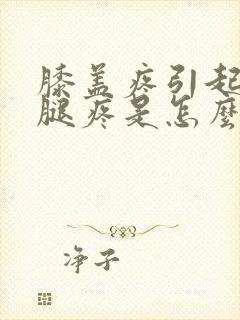 膝盖疼引起
腿疼是怎麼
净子